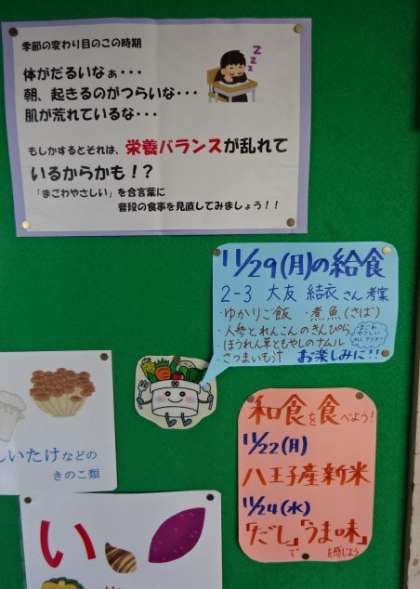 季節の変わり目のこの時期
体がだるいなぁ・・・
朝、起きるのがつらいな・・・
肌が荒れているな・・・
もしかするとそれは、栄養バランスが乱れて
いるからかも!?
「まごわやさしい」を合言葉に
普段の食事を見直してみましょう!!
11/29(月)の給食
2-3 大友 結衣さん考案
・ゆかりご飯 ・煮魚(さば)
・人参とれんこんのきんぴら
・ほうれん草ともやしのナムル
・さつまいも汁 お楽しみに!!
しいたけなどの
きのこ類
和食を食べよう!
11/22(月)
八王子産新米
11/24(水)
「だし」で「うま味」を感じよう
い